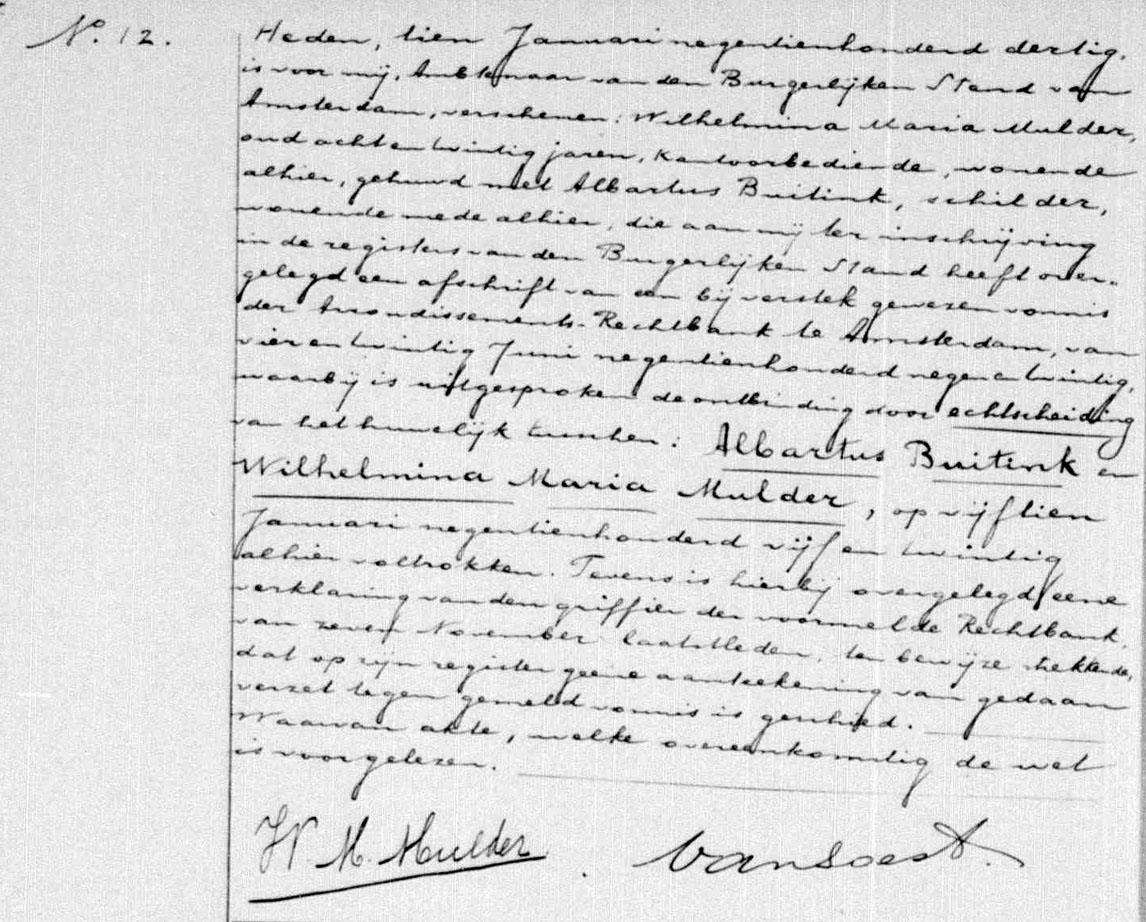 No. 12.
Heden, tien Januari negentienhonderd dertig,
is voor mij, Ambtenaar van den Burgerlijken Stand van
Amsterdam, verschenen: Wilhelmina Maria Mulder,
oud achtentwintig jaren, kantoorbediende, wonende
alhier, gehuwd met Albartus Buitink, schilder,
wonende mede alhier, die aan mij ter inschrijving
in de registers van den Burgerlijken Stand heeft over-
gelegd een afschrift van een bij verstek gewezen vonnis
der Arrondissements-Rechtbank te Amsterdam, van
vierentwintig Juni negentienhonderd negenentwintig,
waarbij is uitgesproken de ontbinding door echtscheiding
van het huwelijk tusschen: Albartus Buitink en
Wilhelmina Maria Mulder, op vijftien
Januari negentienhonderd vijfentwintig
alhier voltrokken. Tevens is hierbij overgelegd eene
verklaring van den griffier der voormelde Rechtbank,
van zeven November laatstleden, ten bewijze strekkende,
dat op zijn register geene aanteekening van gedaan
verzet tegen gemeld vonnis is geschied.
Waarvan akte, welke overeenkomstig de wet
is voorgelezen.
W. M. Mulder. van Soest.